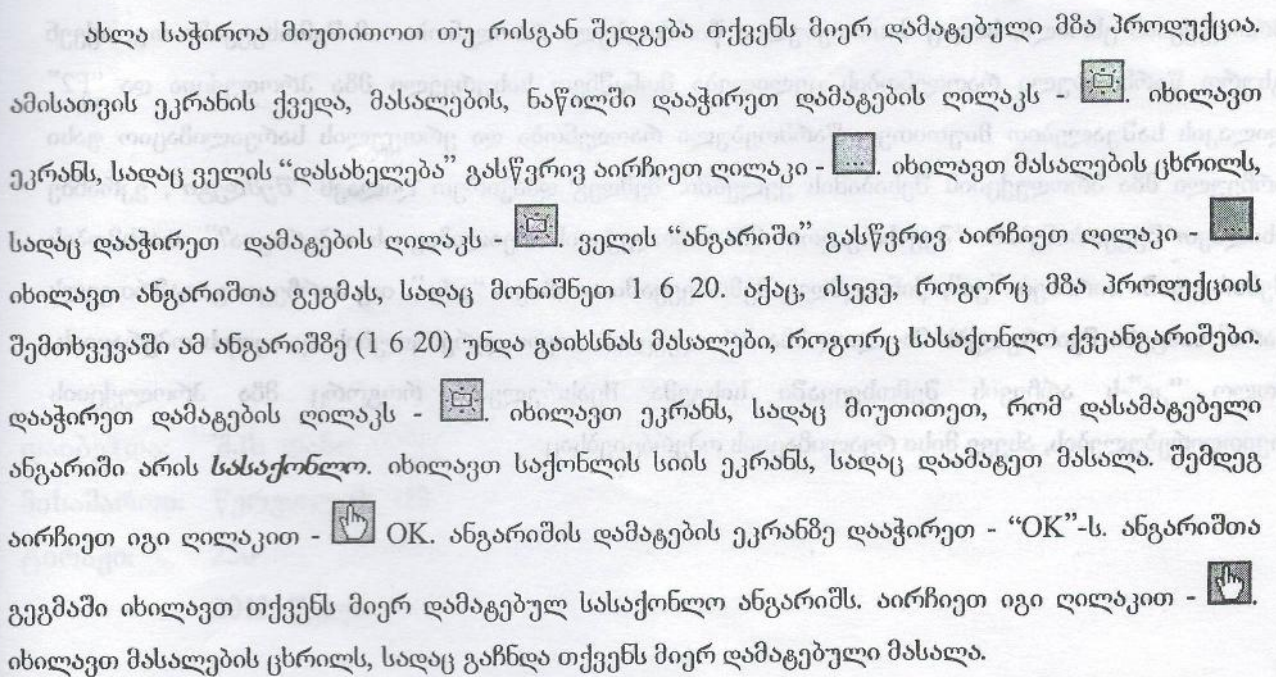 ახლა საჭიროა მიუთითოთ თუ რისგან შედგება თქვენს მიერ დამატებული მზა პროდუქცია.
ამისათვის ეკრანის ქვედა, მასალების, ნაწილში დააჭირეთ დამატების ღილაკს - . იხილავთ
ეკრანს, სადაც ველის “დასახელება” გასწვრივ აირჩიეთ ღილაკი - . იხილავთ მასალების ცხრილს,
სადაც დააჭირეთ დამატების ღილაკს - . ველის “ანგარიში” გასწვრივ აირჩიეთ ღილაკი -
იხილავთ ანგარიშთა გეგმას, სადაც მონიშნეთ 1 6 20. აქაც, ისევე, როგორც მზა პროდუქციის
შემთხვევაში ამ ანგარიშზე (1 6 20) უნდა გაიხსნას მასალები, როგორც სასაქონლო ქვეანგარიშები.
დააჭირეთ დამატების ღილაკს - . იხილავთ ეკრანს, სადაც მიუთითეთ, რომ დასამატებელი
ანგარიში არის სასაქონლო. იხილავთ საქონლის სიის ეკრანს, სადაც დაამატეთ მასალა. შემდეგ
აირჩიეთ იგი ღილაკით - OK. ანგარიშის დამატების ეკრანზე დააჭირეთ - “OK”-ს. ანგარიშთა
გეგმაში იხილავთ თქვენს მიერ დამატებულ სასაქონლო ანგარიშს. აირჩიეთ იგი ღილაკით - .
იხილავთ მასალების ცხრილს, სადაც გაჩნდა თქვენს მიერ დამატებული მასალა.